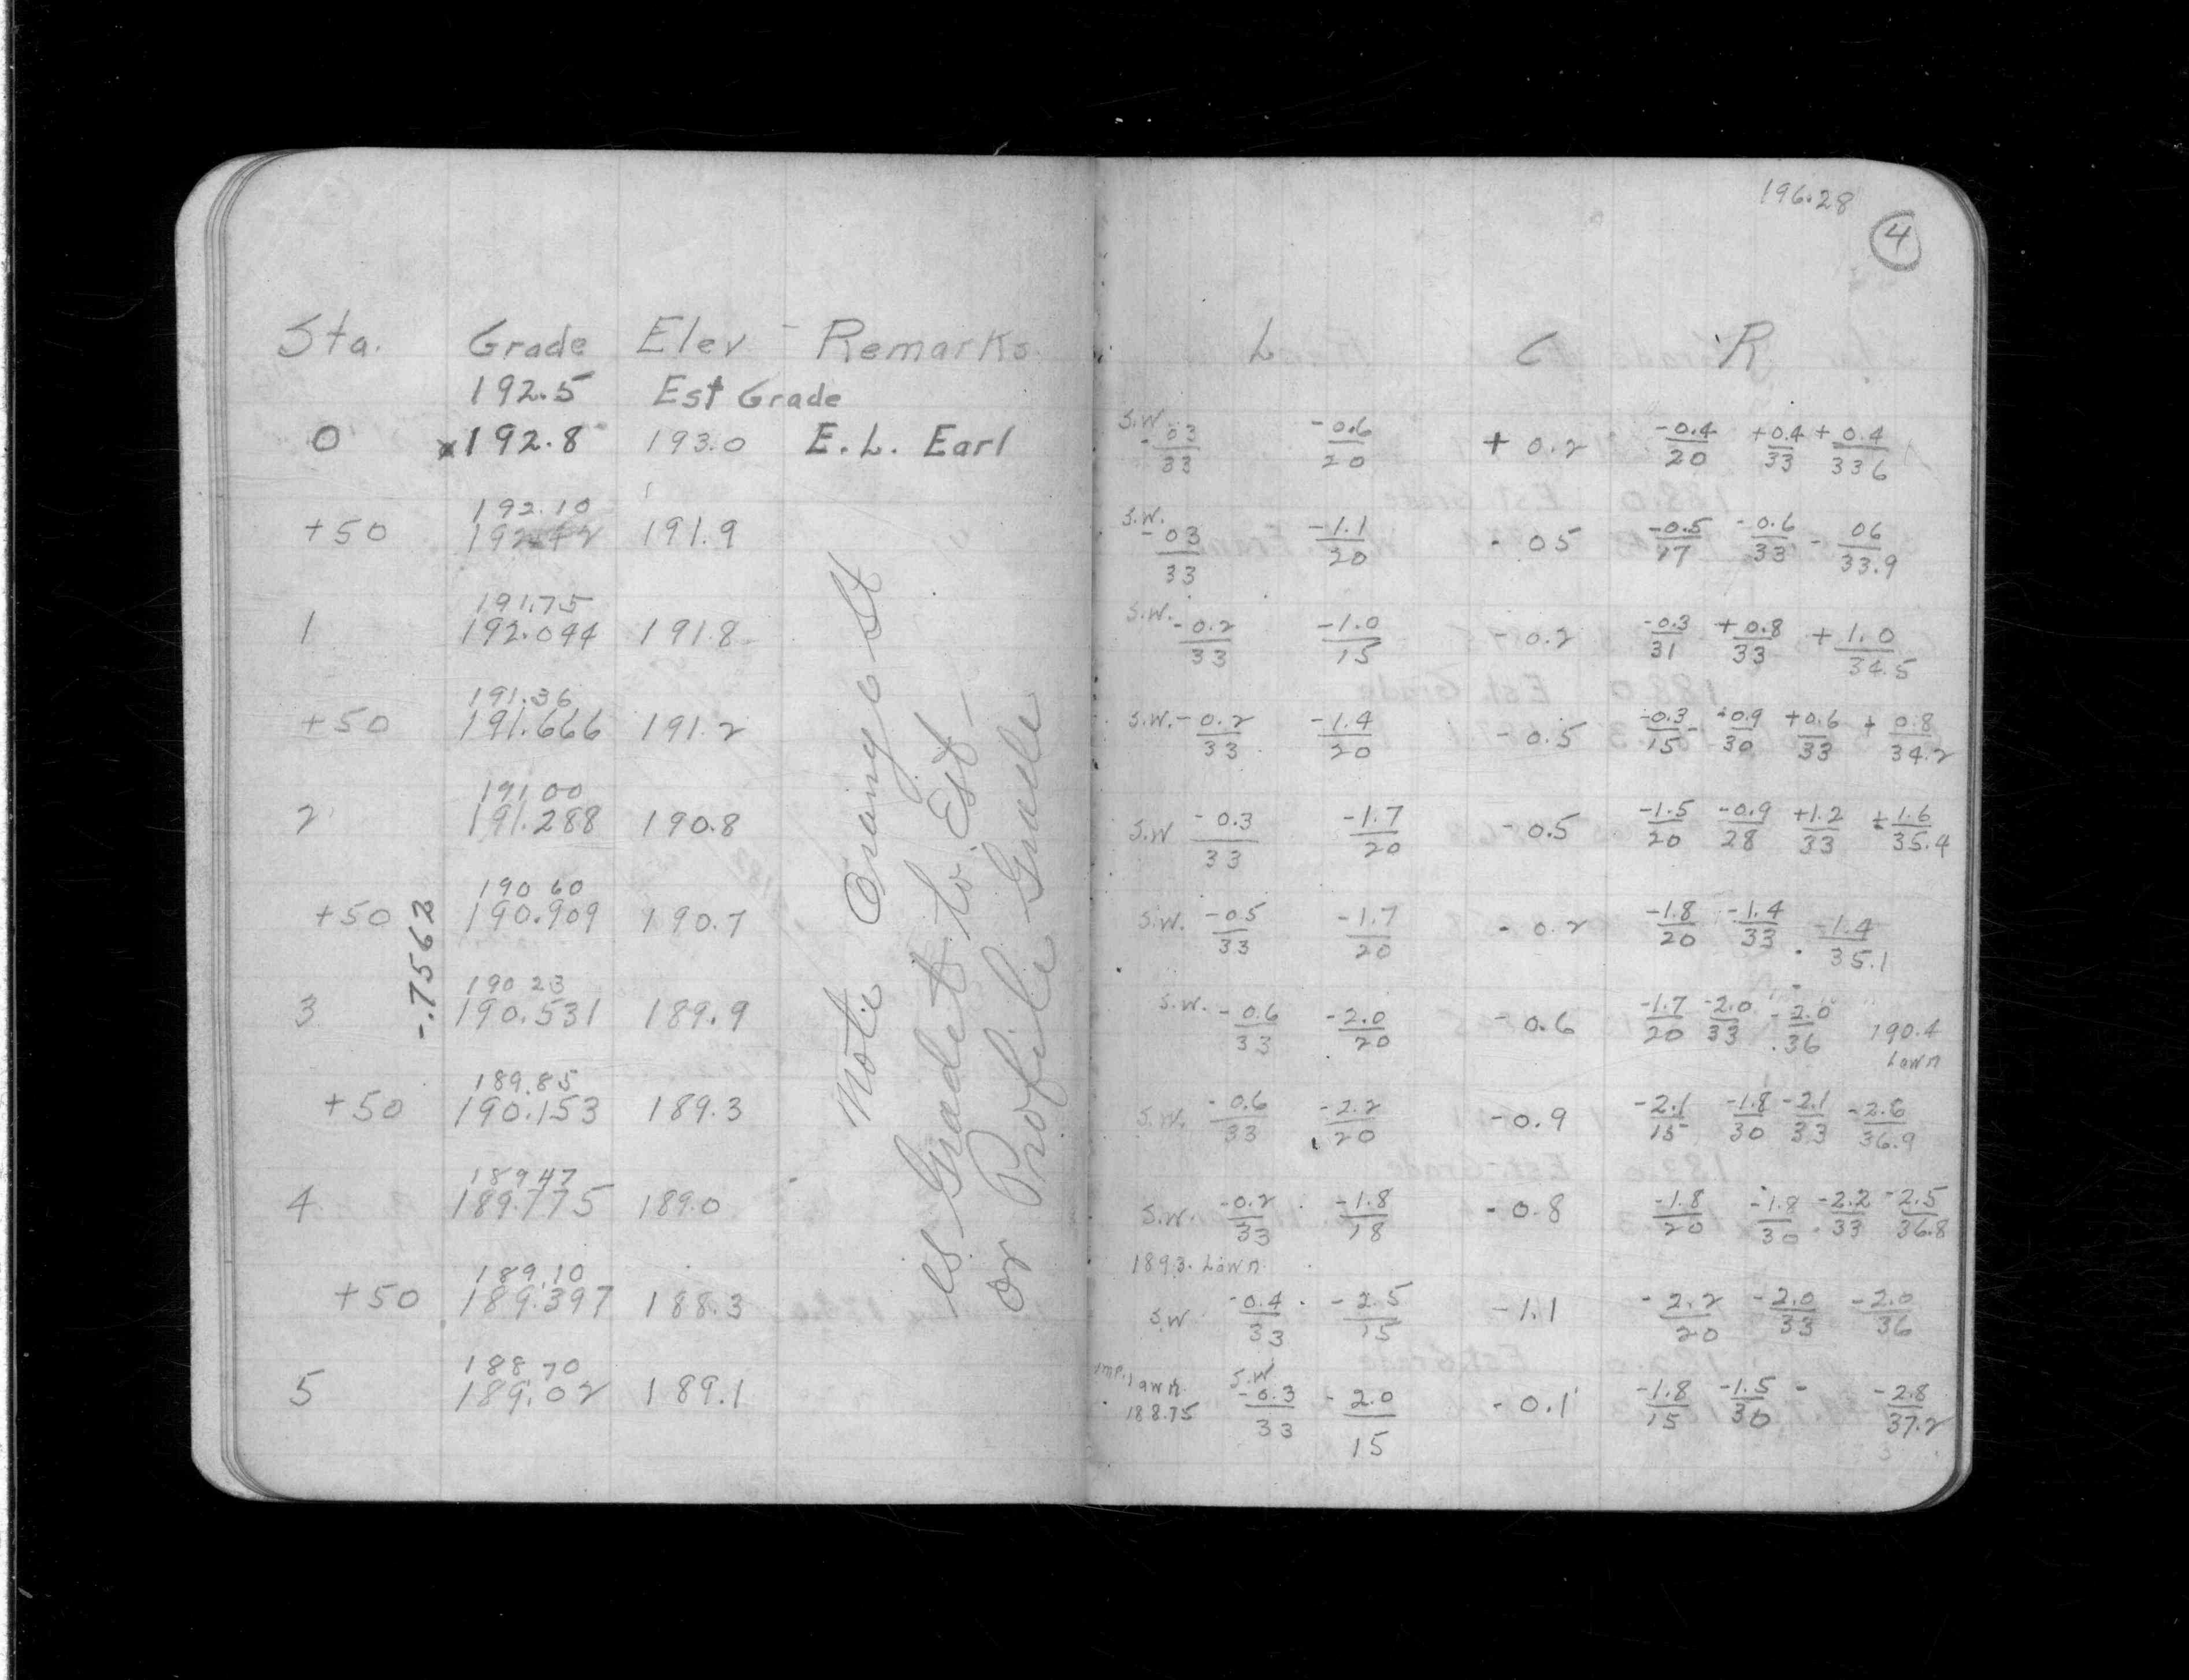 Sta. Grade Elev Remarks
192.5 Est Grade
0 x192.8 193.0 E. L. Earl
192.10
+50 191.9
191.75
1 192.044 191.8
191.36
+50 191.666 191.2
191 00
2 191.288 190.8
190 60
+50 190.909 190.7
190 23
3 190.531 189.9
189.85
+50 190.153 189.3
189 47
4 189.775 189.0
189.10
+50 189.397 188.3
188 70
5 189.02 189.1
-.7562
Note
es Grade to Est
or Profile Grade
196.28
4
L C R
S.W. -03/33 -0.6/20 + 0.2 -0.4/20 +0.4/33 +0.4/336
S.W. -03/33 -1.1/20 - 05 -0.5/17 -0.6/33 - 06/33.9
S.W. -0.2/33 -1.0/15 - 0.2 -0.3/31 +0.8/33 + 1.0/34.5
S.W. -0.2/33 -1.4/20 - 0.5 -0.3/15 -0.9/30 +0.6/33 + 0.8/34.2
S.W -0.3/33 -1.7/20 - 0.5 -1.5/20 -0.9/28 +1.2/33 +1.6/35.4
S.W. -0.5/33 -1.7/20 - 0.2 -1.8/20 -1.4/33 -1.4/35.1
S.W. -0.6/33 -2.0/20 - 0.6 -1.7/20 -2.0/33 -2.0/36 190.4
Lawn
S.W. -0.6/33 -2.2/20 - 0.9 -2.1/15 -1.8/30 -2.1/33 -2.6/36.9
S.W. -0.2/33 -1.8/18 - 0.8 -1.8/20 -1.8/30 -2.2/33 -2.5/36.8
1893. Lawn
S.W -0.4/33 -2.5/15 - 1.1 -2.2/20 -2.0/33 -2.0/36
lawn 188.75 S.W -0.3/33 -2.0/15 - 0.1 -1.8/15 -1.5/30 - -2.8/37.2